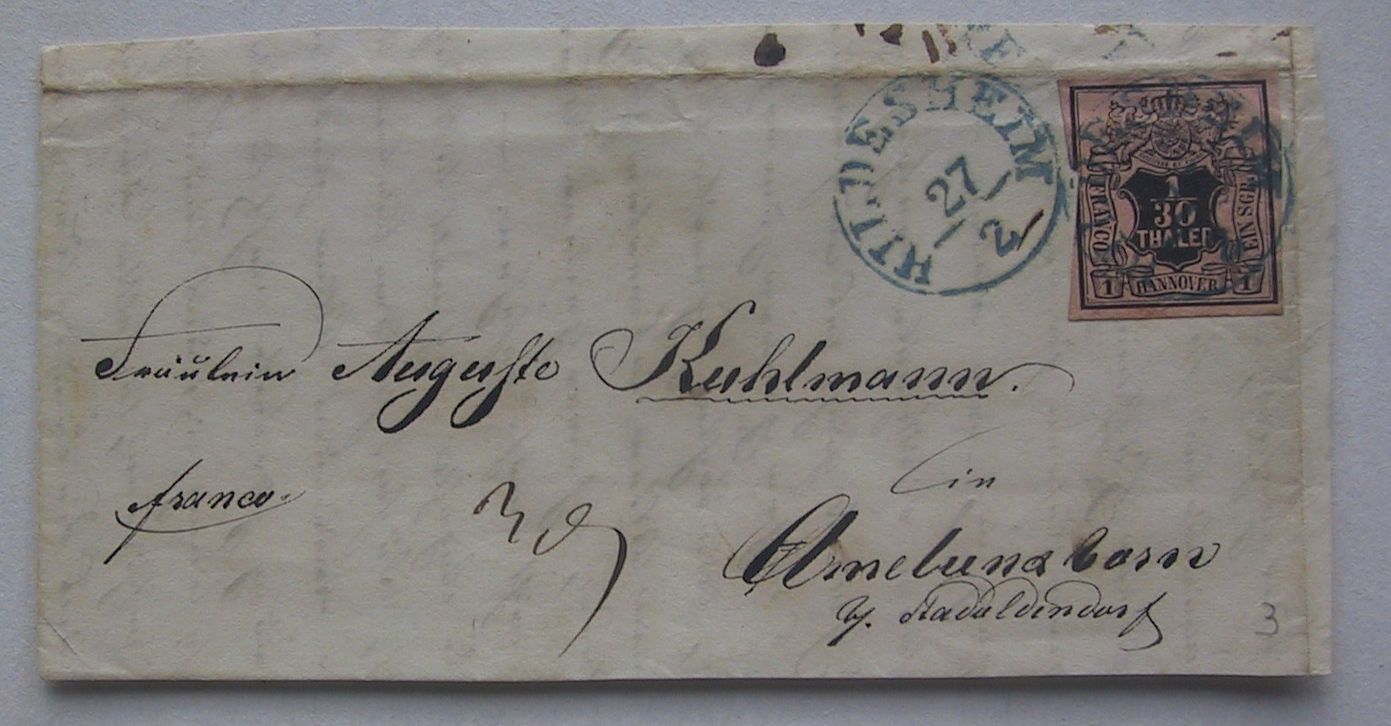 HILDESHEIM
27
2
1
30
THALER
FRANCO
EIN SGR.
1 HANNOVER 1
Fräulein Auguste Kuhlmann.
franco.
in
Amelunxborn
b. Stadoldendorf
3